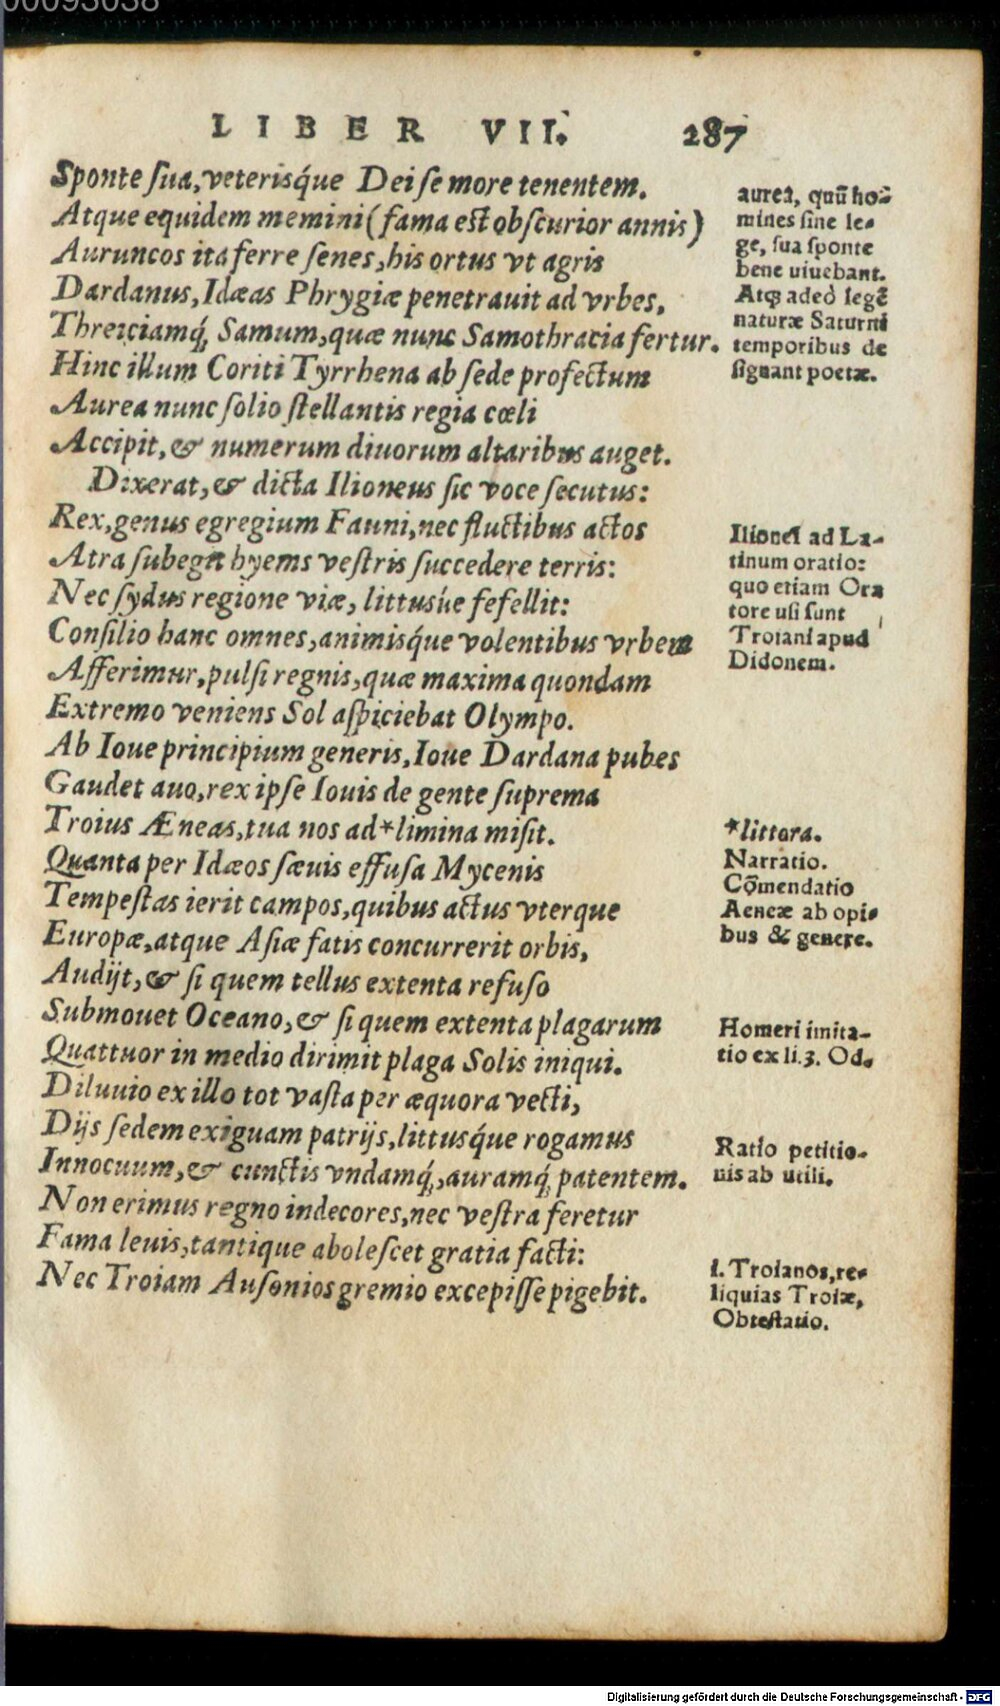 00093038
LIBER VII. 287
Sponte ſua, veterisq́ue Dei ſe more tenentem.
Atque equidem memini (fama est obſcurior annis)
Auruncos ita ferre ſenes, his ortus vt agris
Dardanus, Idæas Phrygiæ penetrauit ad vrbes,
Threiciamq́; Samum, quæ nunc Samothracia fertur.
Hinc illum Coriti Tyrrhena ab ſede profectum
Aurea nunc ſolio ſtellantis regia cœli
Accipit, & numerum diuorum altaribus auget.
Dixerat, & dicta Ilioneus ſic voce ſecutus:
Rex, genus egregium Fauni, nec fluctibus actos
Atra ſubegit hyems veſtris ſuccedere terris:
Nec ſydus regione viæ, littusúe fefellit:
Conſilio hanc omnes, animisq́ue volentibus vrbem
Afferimur, pulſi regnis, quæ maxima quondam
Extremo veniens Sol aſpiciebat Olympo.
Ab Ioue principium generis, Ioue Dardana pubes
Gaudet auo, rex ipſe Iouis de gente ſuprema
Troius Æneas, tua nos ad*limina miſit.
Quanta per Idæos ſæuis effuſa Mycenis
Tempeſtas ierit campos, quibus actus vterque
Europæ, atque Aſiæ fatis concurrerit orbis,
Audijt, & ſi quem tellus extenta refuſo
Submouet Oceano, & ſi quem extenta plagarum
Quattuor in medio dirimit plaga Solis iniqui.
Diluuio ex illo tot vaſta per æquora vecti,
Dijs ſedem exiguam patrijs, littusq́ue rogamus
Innocuum, & cunctis vndamq́;, auramq́; patentem.
Non erimus regno indecores, nec veſtra feretur
Fama leuis, tantique aboleſcet gratia facti:
Nec Troiam Auſonios gremio excepiſſe pigebit.
aurea, quũ ho-
mines ſine le-
ge, ſua ſponte
bene uiuebant.
Atq; adeò legẽ
naturæ Saturni
temporibus de
ſignant poetæ.
Ilionei ad La-
tinum oratio:
quo etiam Ora
tore uſi ſunt
Troiani apud
Didonem.
*littora.
Narratio.
Cõmendatio
Aeneæ ab opi-
bus & genere.
Homeri imita-
tio ex li.3. Od.
Ratio petitio-
nis ab utili.
i. Troianos, re-
liquias Troiæ,
Obteſtatio.
Digitalisierung gefördert durch die Deutsche Forschungsgemeinschaft - DFG